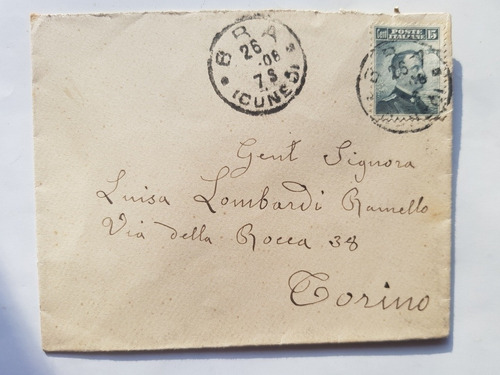 BRA
26
.08
7S
(CUNEO)
POSTE
ITALIANE
15
Gent Signora
Luisa Lombardi Ramello
Via della Rocca 38
Torino